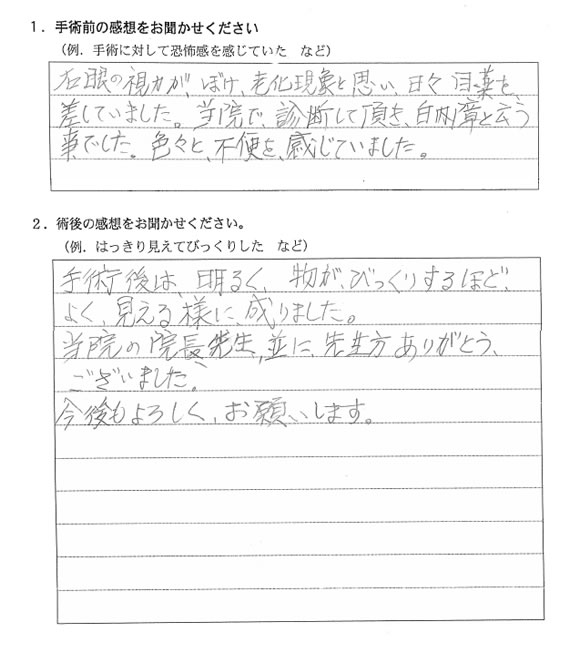 1．手術前の感想をお聞かせください
（例．手術に対して恐怖感を感じていた　など）
右眼の視力が、ぼけ、老化現象と思い、日々目薬を、
差していました。当院で、診断して頂き、白内障と云う
事でした。色々と、不便を、感じていました。
2．術後の感想をお聞かせください。
（例．はっきり見えてびっくりした　など）
手術後は、明るく、物が、びっくりするほど、
よく、見える様に成りました。
当院の院長先生、並に、先生方ありがとう、
ございました。
今後もよろしく、お願いします。